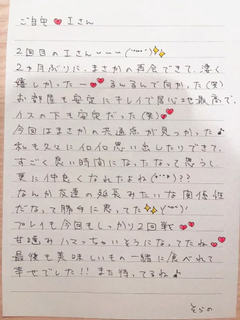 ご自宅❤Iさん
2回目のIさん〜〜〜
2ヶ月ぶりに、まさかの再会できて、凄く
嬉しかったー❤るんるんで向かった(笑)
お部屋も安定にキレイで居心地最高で、
イスの下も安定だった(笑)❤
今回はまさかの共通点が見つかった♪
私も久々にイロイロ思い出したりできて、
すごく良い時間になったなって思うし
更に仲良くなれたよね???
なんか友達の延長みたいな関係性
だなって勝手に思ってた✨
プレイも今回もしっかり2回戦
甘噛みハマっちゃいそうになってたね❤
最後も美味しいもの一緒に食べれて
幸せでした!!また待ってるね♪